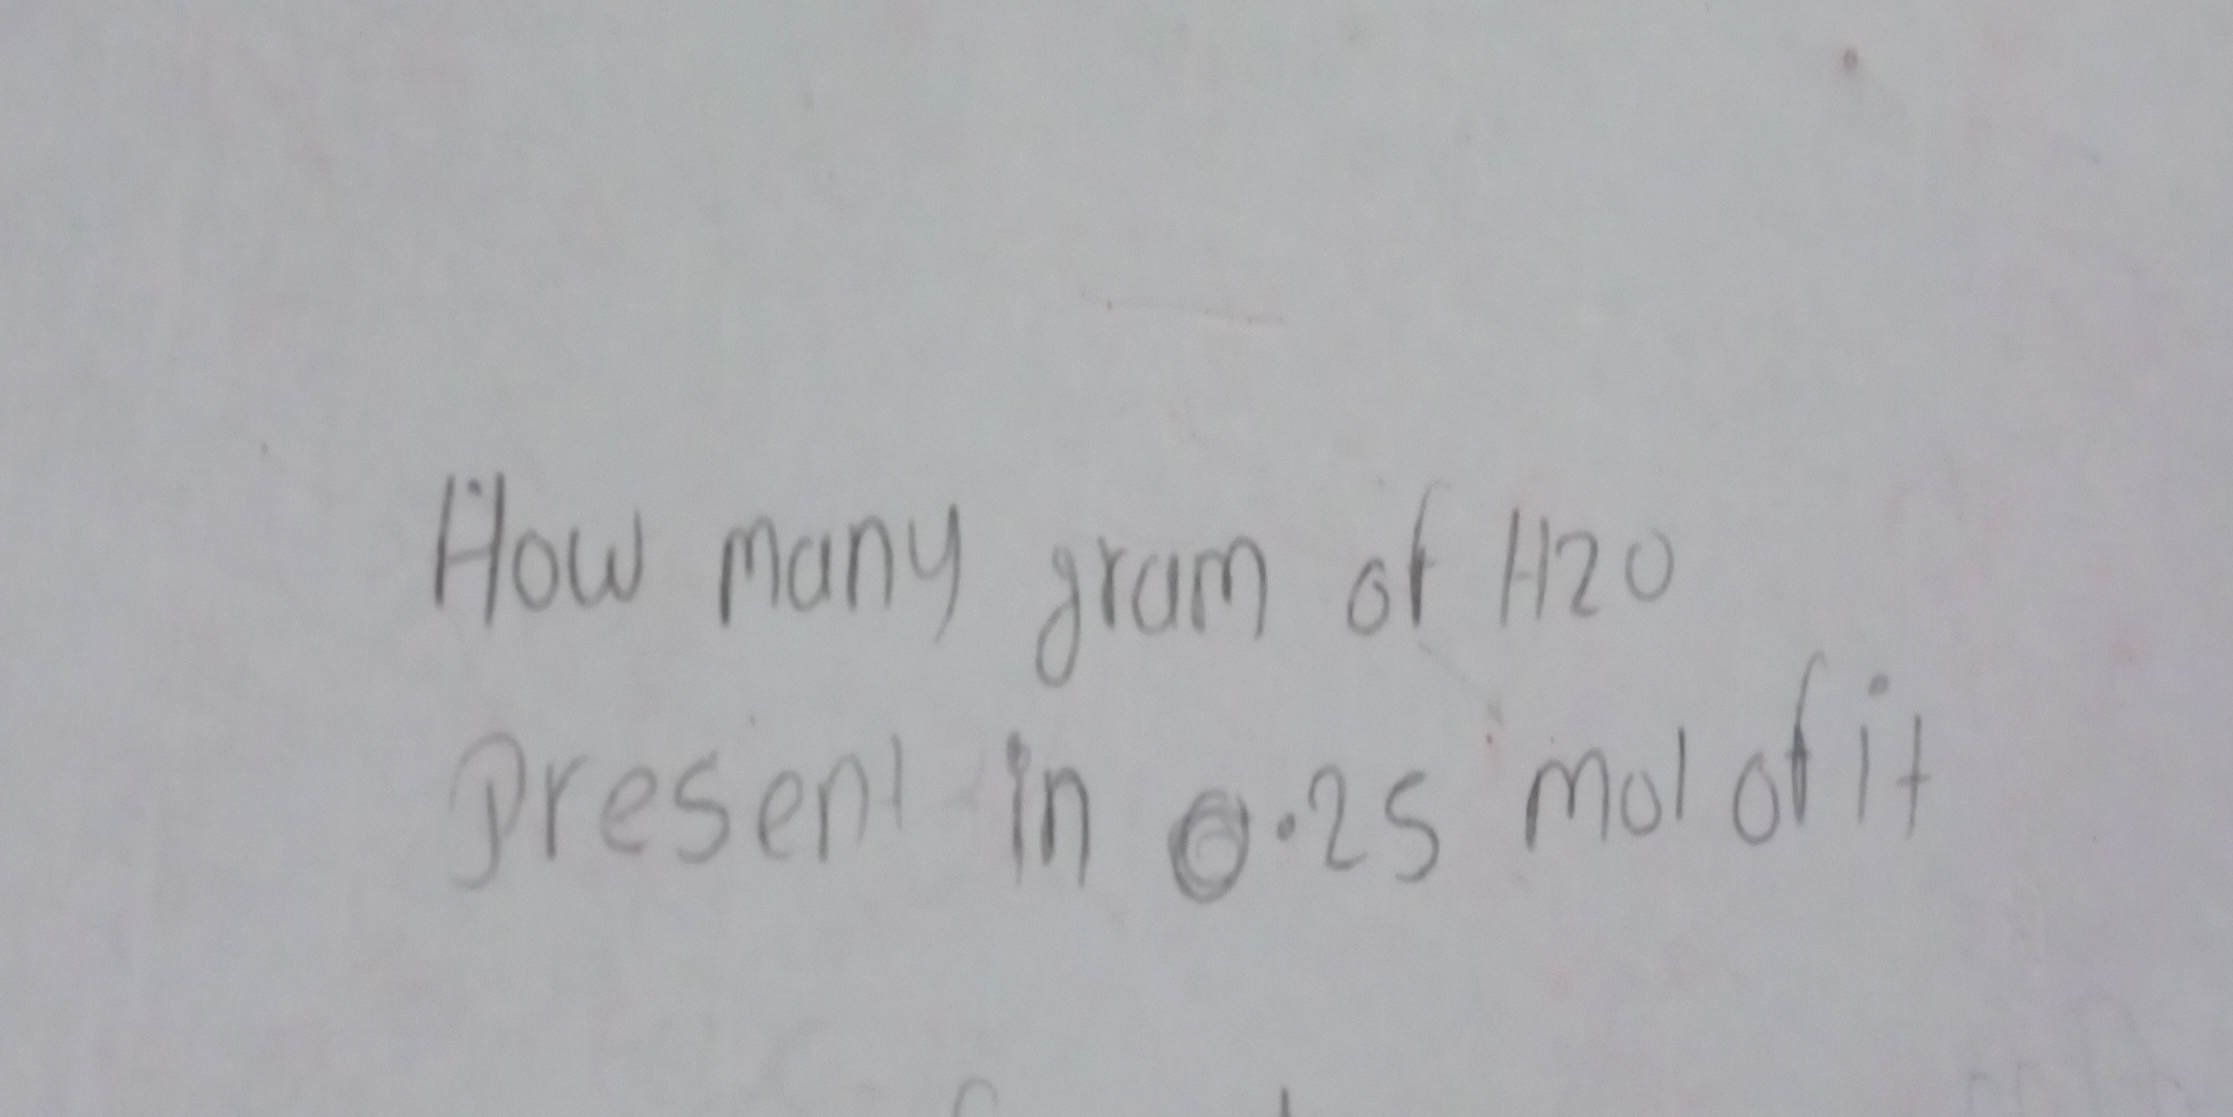 How many gram of H2O
present in 0.25 mol of it